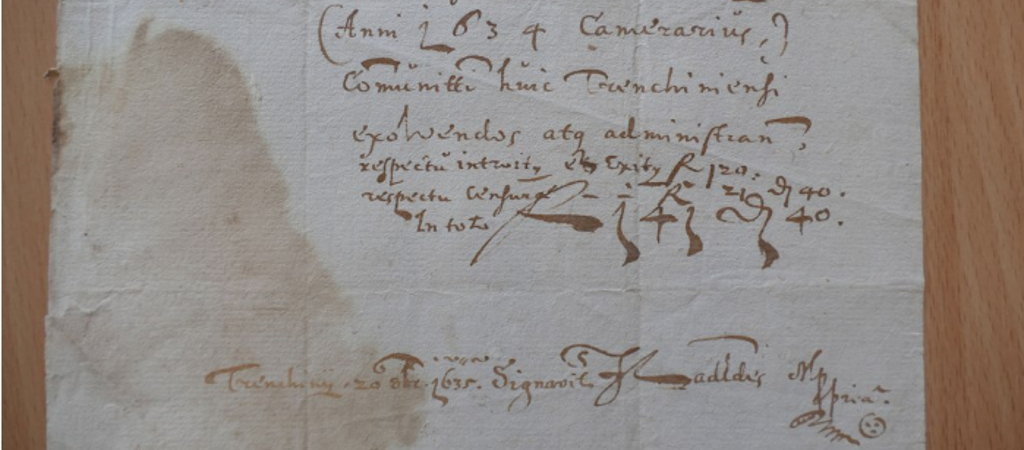 (Anni 1634 Camerarius,)
Comunitti huic Trenchiniensi
exolvendos atq administran
respectu introitq et exitq f 120.
respectu Censura f 21 d 40.
In toto f 141 d 40.
Trenchinij 20 1635. Signavit mp pria.